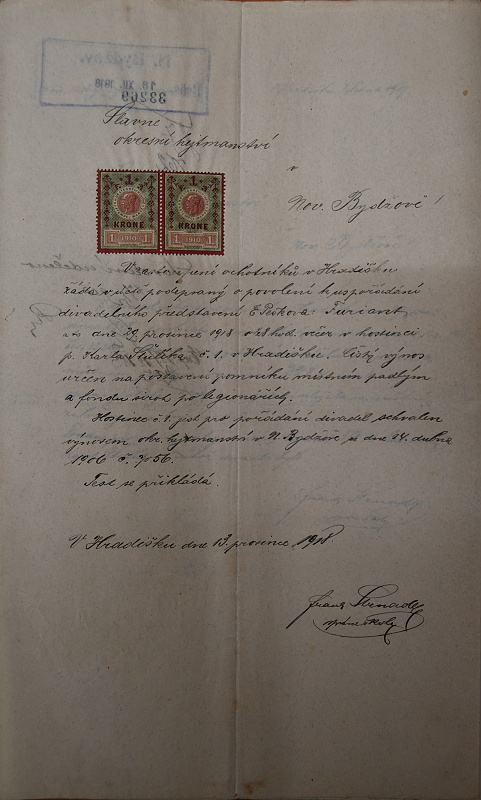 N. Bydžov.
18 XII. 1918
33269
Slavné
okresní hejtmanství
v
Nov. Bydžově!
1 1
KRONE KRONE
1 1910 1 1 1910 1
V zastoupení ochotníků v Hradišku
žádá v úctě podepsaný o povolení k uspořádání
divadelního představení E. Peškova: Furiant
dne 29. prosince 1918 o 8 hod. večer v hostinci
p. Karla č. 1. v Hradišku. Čistý výnos
určen na postavení pomníku místním padlým
a fondu sirot po legionářích.
Hostinec č. 1. jest pro pořádání divadel schválen
výnosem okr. hejtmanství v N. Bydžově ze dne 14. dubna
1906 č. 7056.
Text se přikládá.
V Hradišku dne 13. prosince 1918
správce školy